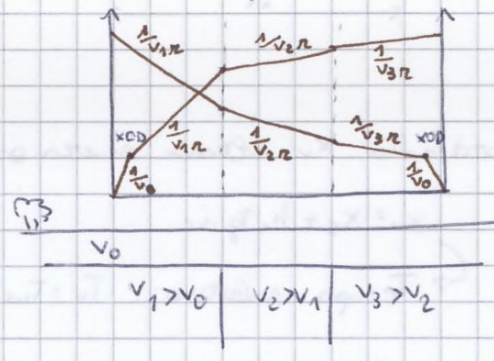 1/v₁r 1/v₂r 1/v₃r
xOD 1/v₁r 1/v₂r 1/v₃r xOD
1/v₀ 1/v₀
v₀
v₁>v₀ v₂>v₁ v₃>v₂